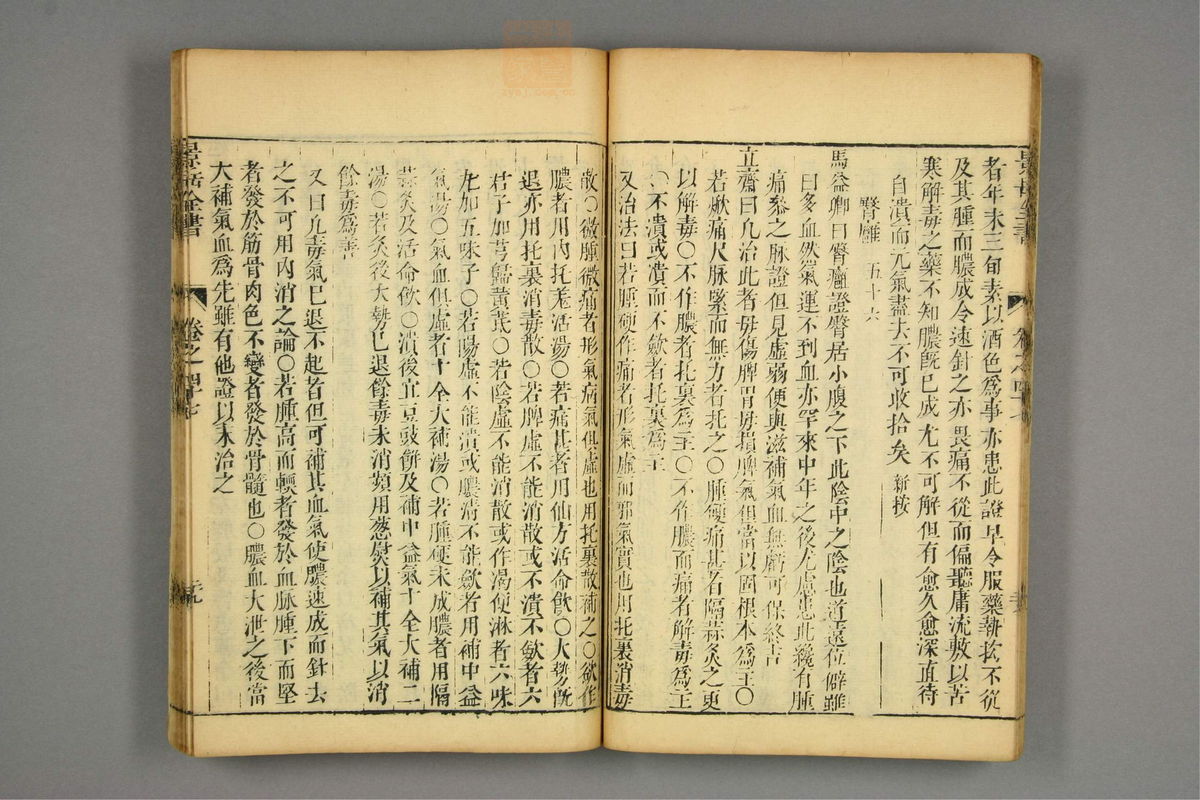 者年未三旬素以酒色為事亦患此證早令服藥執拗不從
及其腫而膿成令速針之亦畏痛不從而偏聽庸流敷以苦
寒解毒之藥不知膿既已成尤不可解但有愈久愈深直待
自潰而元氣盡去不可收拾矣新按
臀癰 五十六
馬益卿曰臀癰證臀居小腹之下此陰中之陰也道遠位僻雖
曰多血然氣運不到血亦罕來中年之後尤慮患此纔有腫
痛參之脉證但見虛弱便與滋補氣血無虧可保終吉
立齋曰凡治此者毋傷脾胃毋損脾氣但當以固根本為主○
若焮痛尺脉緊而無力者托之○腫硬痛甚者隔蒜灸之更
以解毒○不作膿者托裏為主○不作膿而痛者解毒為主
○不潰或潰而不斂者托裏為主
又治法曰若腫硬作痛者形氣虛而邪氣實也用托裏消毒
散○微腫微痛者形氣病氣俱虛也用托裏散補之○欲作
膿者用內托羌活湯○若痛甚者用仙方活命飲○大勢既
退亦用托裏消毒散○若脾虛不能消散或不潰不斂者六
君子加芎歸黃芪○若陰虛不能消散或作渴便淋者六味
丸加五味子○若陽虛不能潰或膿清不能斂者用補中益
氣湯○氣血俱虛者十全大補湯○若腫硬未成膿者用隔
蒜灸及活命飲○潰後宜豆豉餅及補中益氣十全大補二
湯○若灸後大勢已退餘毒未消頻用葱熨以補其氣以消
餘毒為善
又曰凡毒氣已退不起者但可補其血氣使膿速成而針去
之不可用內消之論○若腫高而軟者發於血脉腫下而堅
者發於筋骨肉色不變者發於骨髓也○膿血大泄之後當
大補氣血為先雖有他證以末治之
景岳全書
卷之四十七